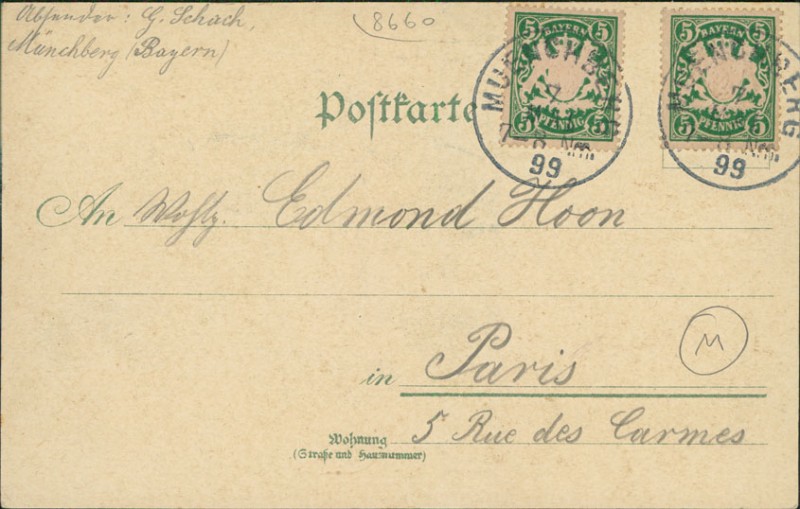 Absender: G. Schach,
Münchberg (Bayern)
8660
5 BAYERN 5
5 PFENNIG 5
5 BAYERN 5
5 PFENNIG 5
MUENCHBERG
7
7-8 Nm.
99
MUENCHBERG
7
Nm.
99
Postkarte
An Wohlg. Edmond Hoon
M
in Paris
Wohnung 5 Rue des Carmes
(Straße und Hausnummer)